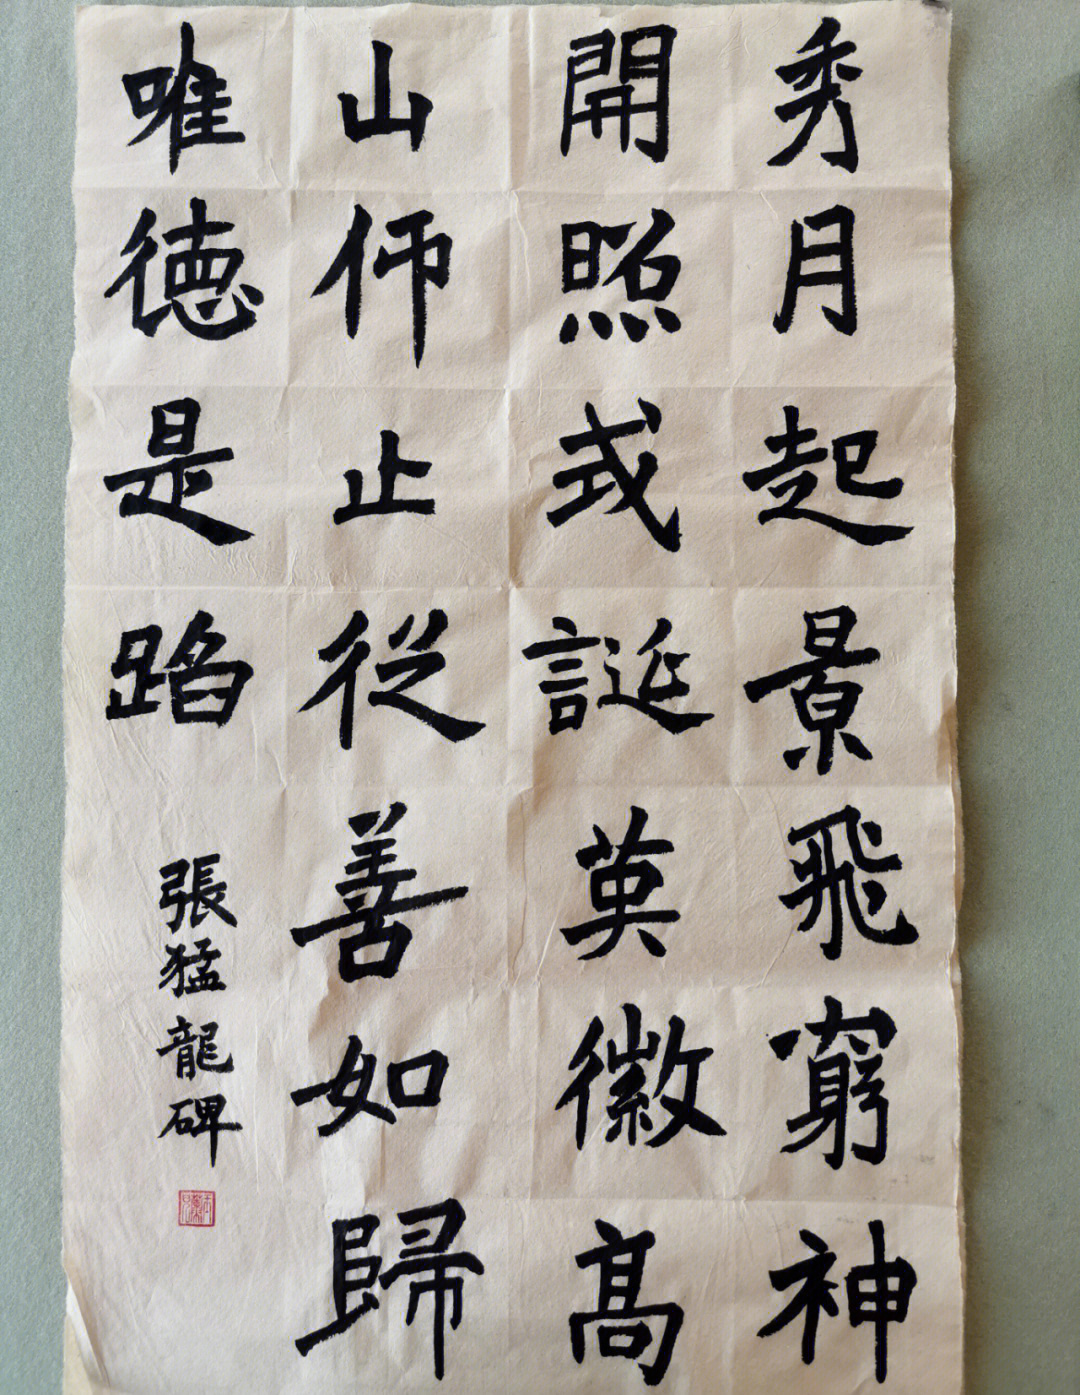 秀月起景飛窮神
開照式誕英徽高
山仰止從善如歸
唯德是蹈
張猛龍碑